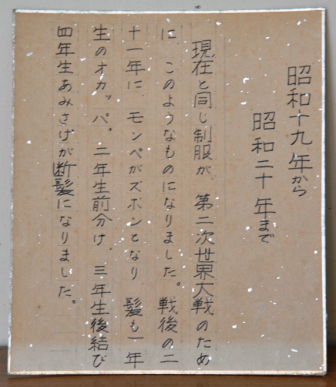 昭和十九年から
昭和二十年まで
現在と同じ制服が、第二次世界大戦のため
に、このようなものになりました。戦後の二
十一年に、モンペがズボンとなり、髪も一年
生のオカッパ。二年生前分け、三年生後結び
四年生あみさげが断髪になりました。